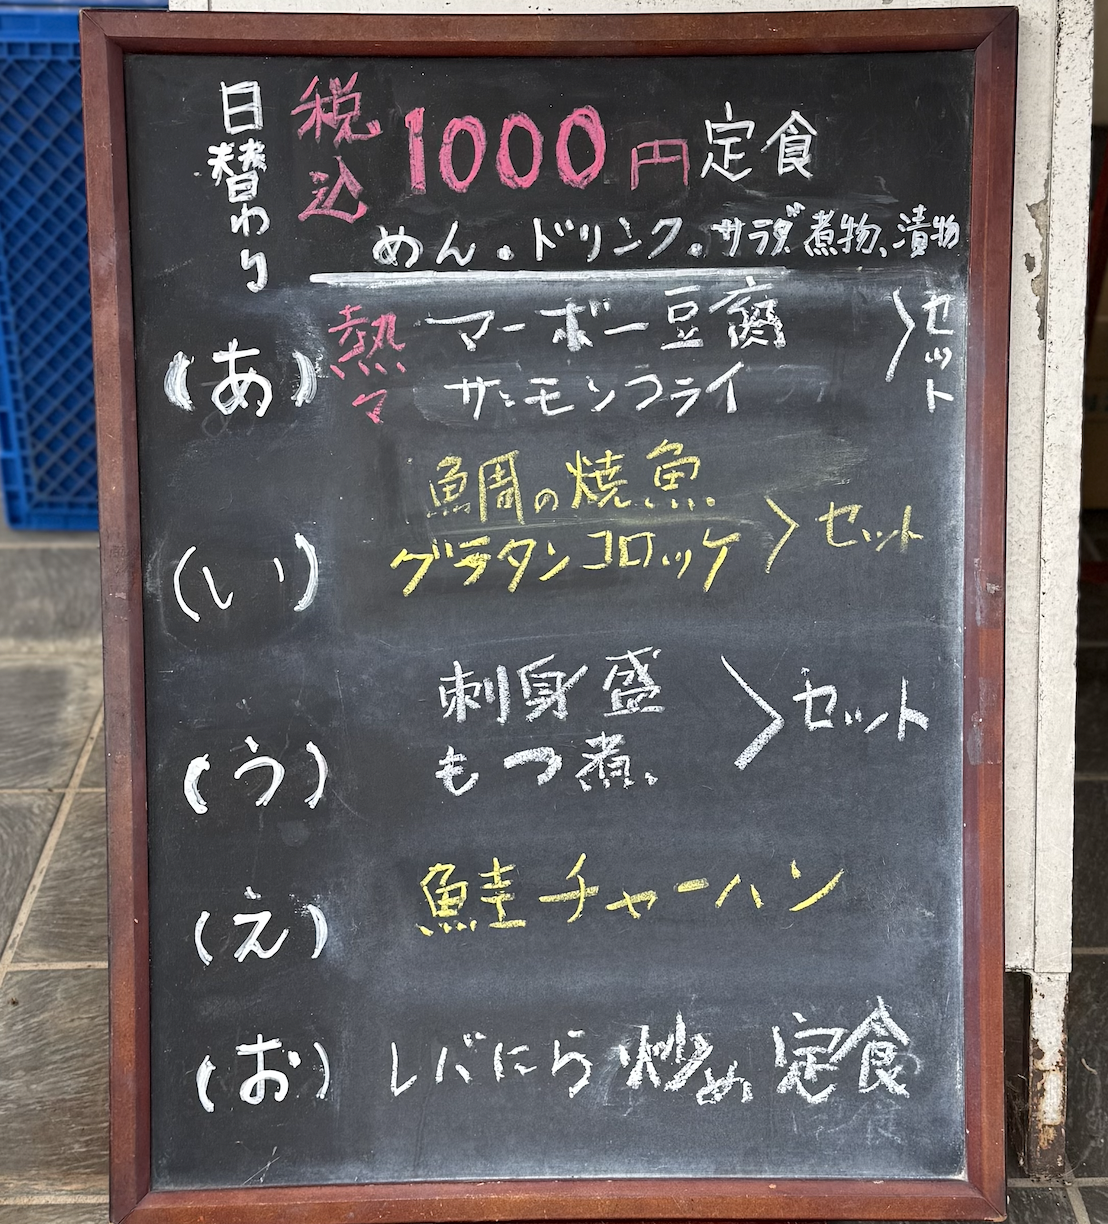 日替わり
税込 1000円 定食
めん・ドリンク・サラダ 煮物、漬物
(あ) 熱々 マーボー豆腐
サーモンフライ
セット
(い) 鯛の焼魚
グラタンコロッケ
セット
(う) 刺身盛
もつ煮
セット
(え) 鮭チャーハン
(お) レバにら炒め定食